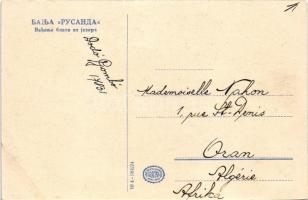 БАЊА »РУСАНДА«
Вађење блата из језера
Mademoiselle Nahon
1, rue St-Denis
Oran
Algérie
Afrika